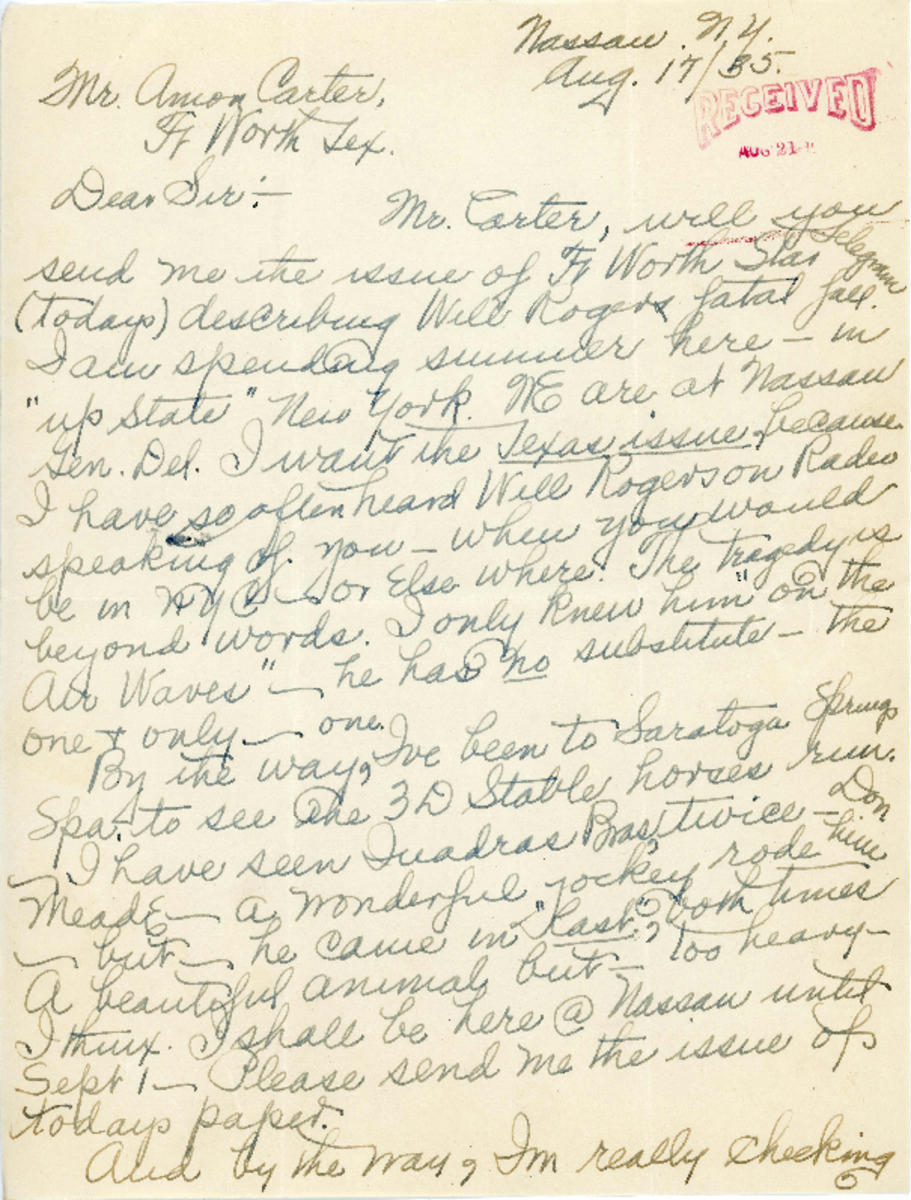 Nassau. N.Y.
Aug. 17/35.
RECEIVED
AUG 21
Mr. Amon Carter,
Ft Worth Tex.
Dear Sir:—
Mr. Carter, will you
send me the issue of Ft Worth Star Telegram
(todays) describing Will Rogers fatal fall.
I am spending summer here — in
"up State" New York. WE are at Nassau
Gen. Del. I want the Texas issue, because
I have so often heard Will Rogers on Radio
speaking of you — when you would
be in NYC — or Else where. The tragedy is
beyond words. I only knew him "on the
Air Waves" — he has no substitute — the
one & only — one.
By the way, I've been to Saratoga Springs
Spa. to see the 3D Stable horses run.
— I have seen Bras twice — Don
Meade — a wonderful jockey rode him
— but — he came in "Last", both times
A beautiful animal but — too heavy —
I think. I shall be here @ Nassau until
Sept 1 — Please send me the issue of
todays paper.
And by the way, I'm really checking